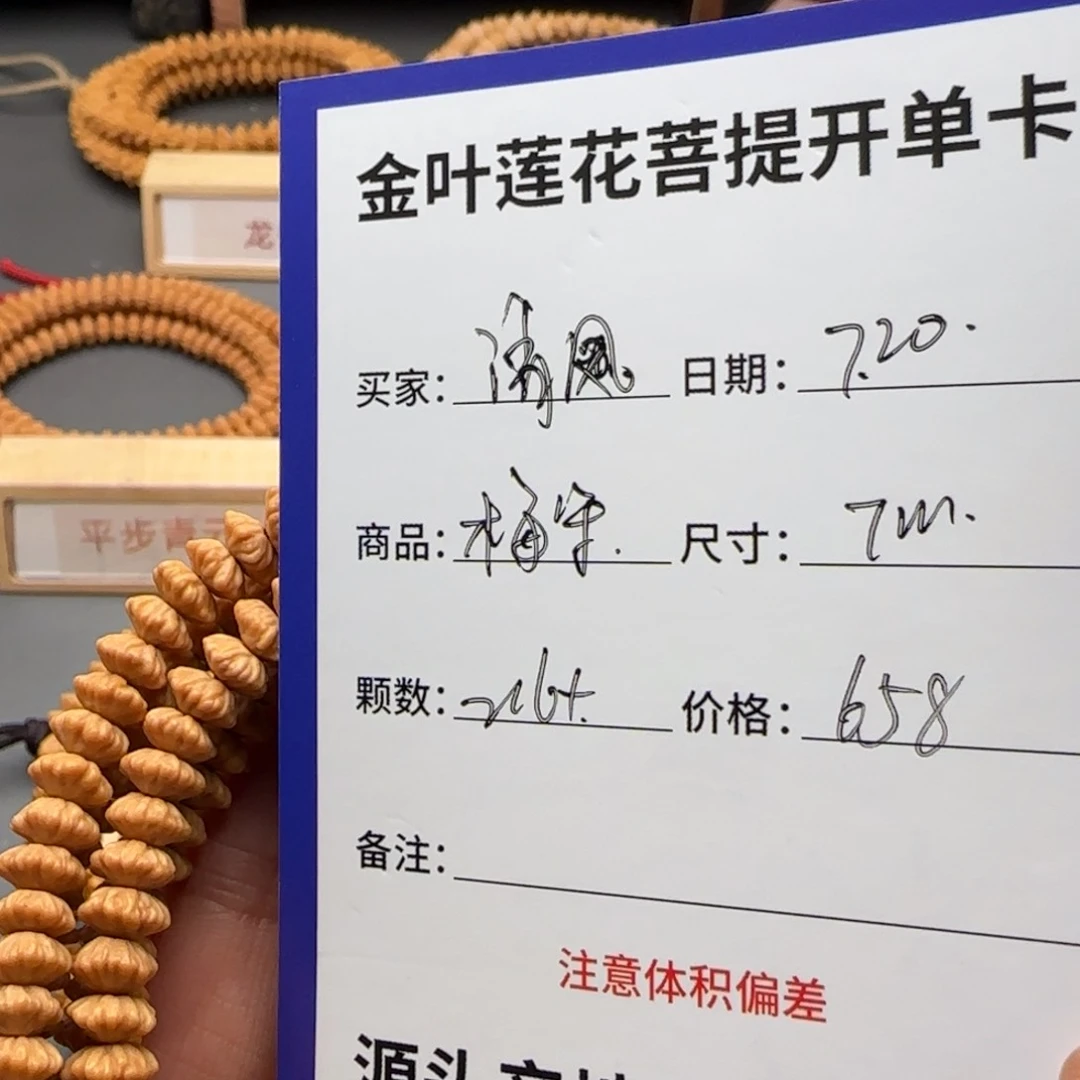 龙
平步青云
金叶莲花菩提开单卡
买家: 清风 日期: 7.20.
商品: 尺寸: 7m.
颗数: 216+. 价格: 658
备注:
注意体积偏差
源头产地